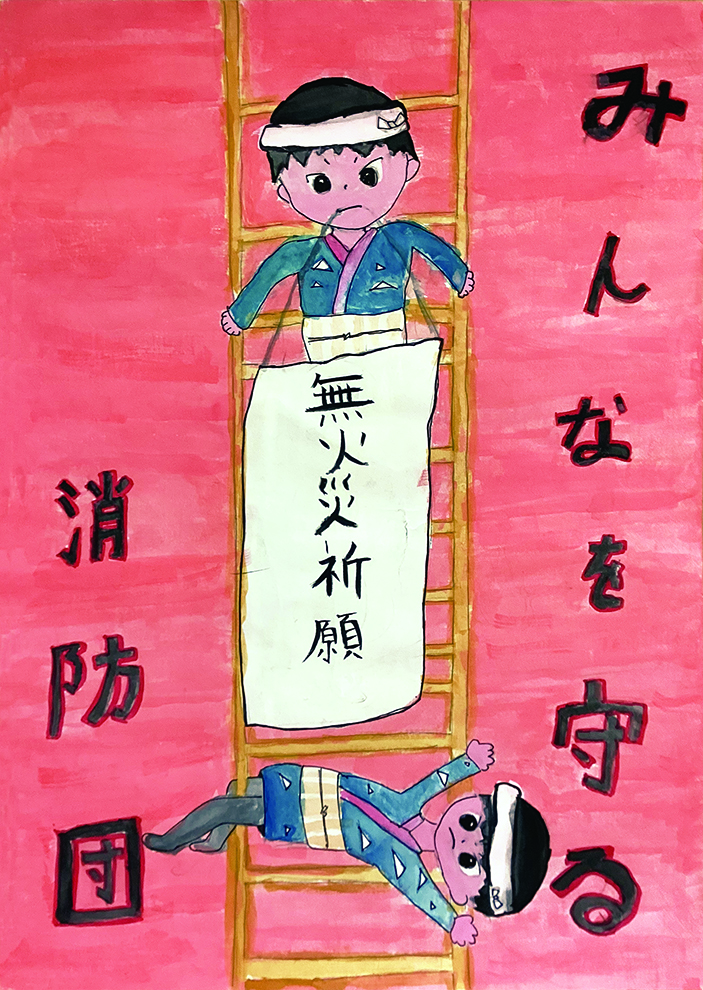 みんなを守る
無火災祈願
消防団